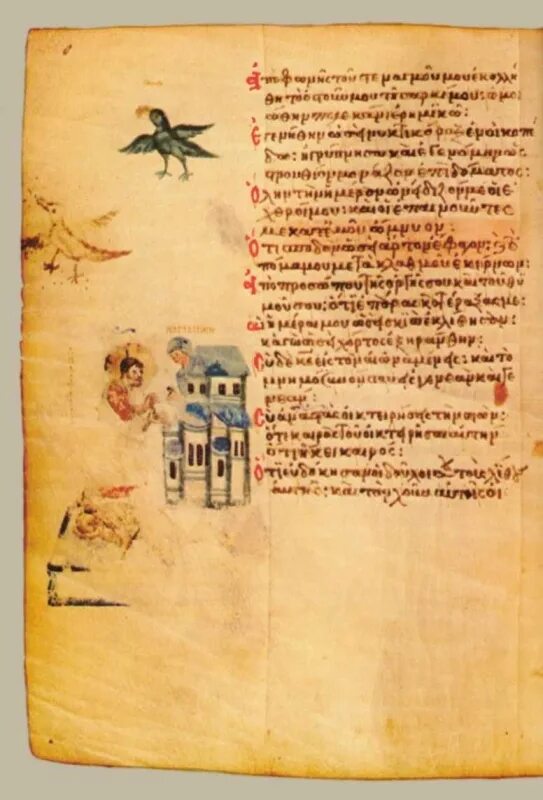 Ἀπὸ φωνῆς τοῦ στεναγμοῦ μου ἐκολλή
θη τὸ ὀστοῦν μου τῇ σαρκί μου: ὡμοι
ώθην πελεκᾶνι ἐρημικῶ:
Ἐγενήθην ὡσεὶ νυκτικόραξ ἐν οἰκοπέ
δω: ἠγρύπνησα καὶ ἐγενόμην ὡς
στρουθίον μονάζον ἐπὶ δόματος:
Ὅλην τὴν ἡμέραν ὠνείδιζόν με οἱ ἐ
χθροί μου: καὶ οἱ ἐπαινοῦντές
με κατ' ἐμοῦ ὤμνυον:
Ὅτι σποδὸν ὡσεὶ ἄρτον ἔφαγον: καὶ τὸ
πόμα μου μετὰ κλαυθμοῦ ἐκίρνων:
Ἀπὸ προσώπου τῆς ὀργῆς σου καὶ τοῦ θυ
μοῦ σου: ὅτι ἐπάρας κατέρραξάς με:
Αἱ ἡμέραι μου ὡσεὶ σκιὰ ἐκλίθησαν:
κἀγὼ ὡσεὶ χόρτος ἐξηράνθην:
Σὺ δὲ κε εἰς τὸν αἰῶνα μένεις: καὶ τὸ
μνημόσυνόν σου εἰς γενεὰν καὶ γε
νεάν:
Σὺ ἀναστὰς οἰκτειρήσεις τὴν σιών:
ὅτι καιρὸς τοῦ οἰκτειρῆσαι αὐτὴν
ὅτι ἥκει καιρός:
Ὅτι εὐδόκησαν οἱ δοῦλοί σου τοὺς λίθους
αὐτῆς: καὶ τὸν χοῦν αὐτῆς οἰ